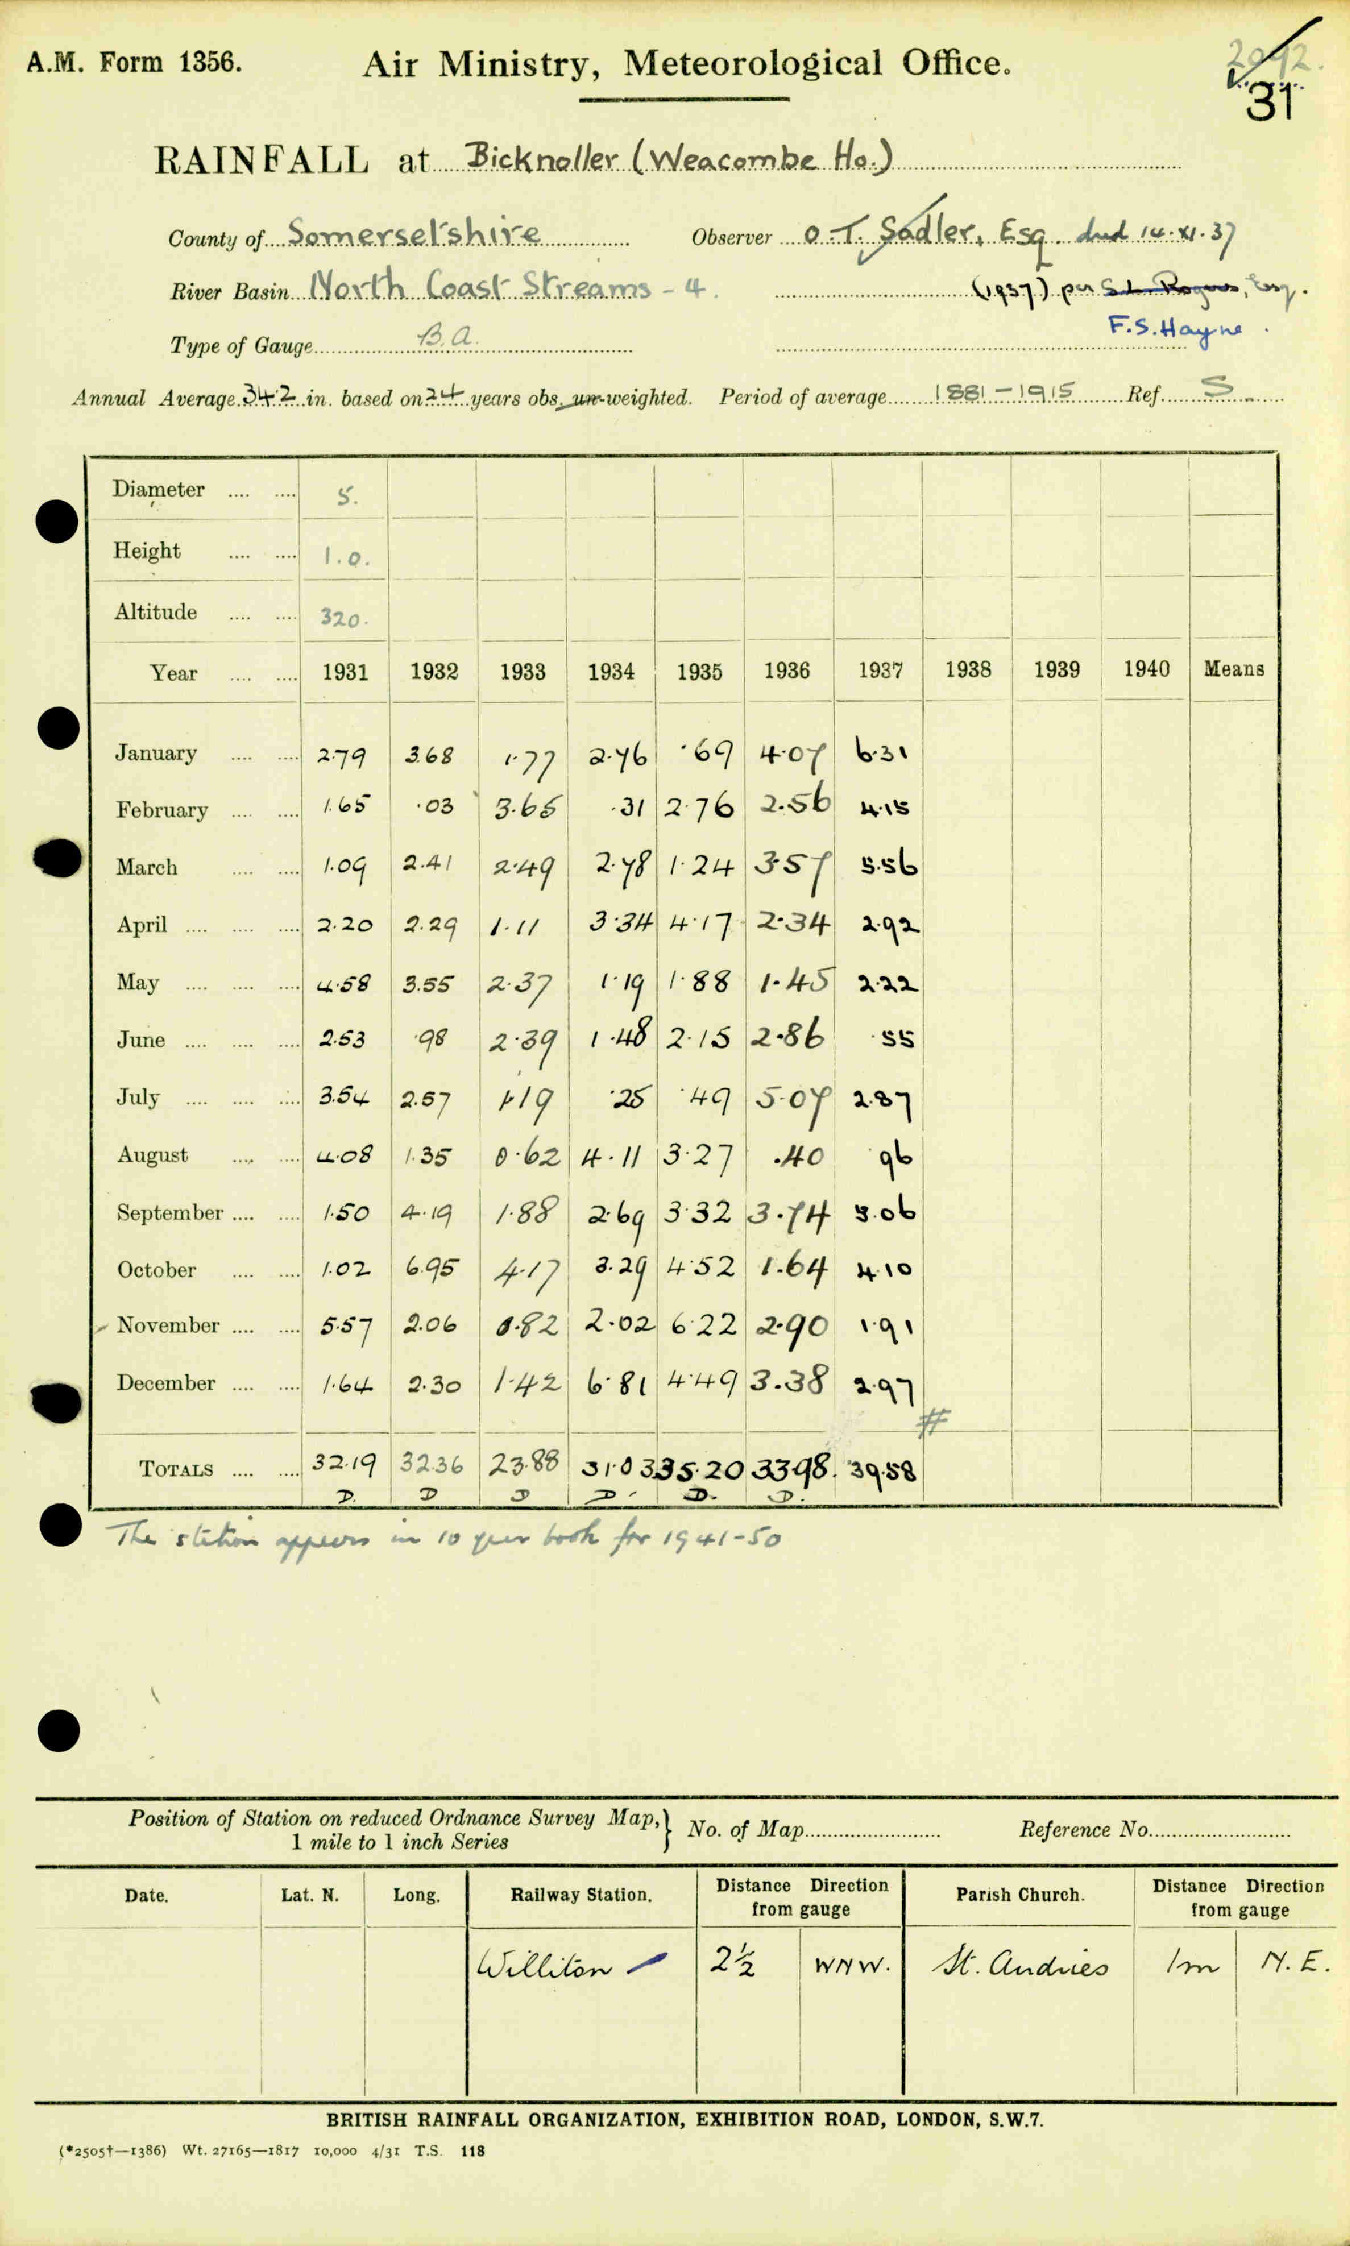 A.M. Form 1356.
Air Ministry, Meteorological Office.
2092.
31
RAINFALL at Bicknoller (Weacombe Ho.)
County of Somersetshire Observer O.T. Sadler, Esq. died 14.XI.37
River Basin North Coast Streams - 4. (1937) per S.L. Rogers, Esq.
F.S. Hayne.
Type of Gauge B.A.
Annual Average 34.2 in. based on 24 years obs. un-weighted. Period of average 1881-1915 Ref. S.
Diameter 5.
Height 1.0.
Altitude 320.
Year 1931 1932 1933 1934 1935 1936 1937 1938 1939 1940 Means
January 2.79 3.68 1.77 2.76 .69 4.07 6.31
February 1.65 .03 3.65 .31 2.76 2.56 4.15
March 1.09 2.41 2.49 2.78 1.24 3.57 5.56
April 2.20 2.29 1.11 3.34 4.17 2.34 2.92
May 4.58 3.55 2.37 1.19 1.88 1.45 2.22
June 2.53 .98 2.39 1.48 2.15 2.86 .55
July 3.54 2.57 1.19 .25 .49 5.07 2.87
August 4.08 1.35 0.62 4.11 3.27 .40 .96
September 1.50 4.19 1.88 2.69 3.32 3.74 5.06
October 1.02 6.95 4.17 3.29 4.52 1.64 4.10
November 5.57 2.06 0.82 2.02 6.22 2.90 1.91
December 1.64 2.30 1.42 6.81 4.49 3.38 2.97
#
TOTALS 32.19 32.36 23.88 31.03 35.20 33.98. 39.58
D. D D D. D. D.
The station appears in 10 year book for 1941-50
Position of Station on reduced Ordnance Survey Map, 1 mile to 1 inch Series } No. of Map Reference No.
Date. Lat. N. Long. Railway Station. Distance Direction from gauge Parish Church. Distance Direction from gauge
Williton 2½ WNW. St. Audries 1m N.E.
BRITISH RAINFALL ORGANIZATION, EXHIBITION ROAD, LONDON, S.W.7.
(*2505†—1386) Wt. 27165—1817 10,000 4/31 T.S. 118